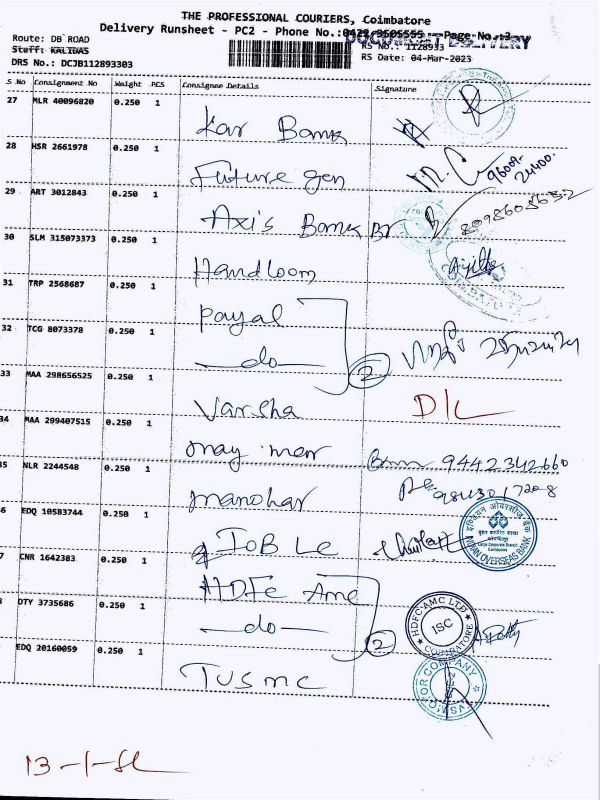 THE PROFESSIONAL COURIERS, Coimbatore
Delivery Runsheet - PC2 - Phone No.:0422 3505555 Page No.:3
DOCUMENT DELIVERY
Route: DB ROAD
RS No.: 1128933
Staff: KALIDAS
DRS No.: DCJB112893303
RS Date: 04-Mar-2023
S No Consignment No Weight PCS Consignee Details Signature
27 MLR 40096820 0.250 1 Kar Bank
28 HSR 2661978 0.250 1 Future gen
29 ART 3012843 0.250 1 Axis Bank Br
30 SLM 315073373 0.250 1 Handloom
31 TRP 2568687 0.250 1 Payal
32 TCG 8073378 0.250 1 —do— 2
33 MAA 298656525 0.250 1 Varsha D/L
34 MAA 299407515 0.250 1 9442342660
35 NLR 2244548 0.250 1 Manohar
6 EDQ 10583744 0.250 1 IOB Lc
INDIAN OVERSEAS BANK
7 CNR 1642383 0.250 1 HDFC Amc
8 DTY 3735686 0.250 1 —do— 2
HDFC AMC LTD
ISC
COIMBATORE
EDQ 20160059 0.250 1 TVS mc